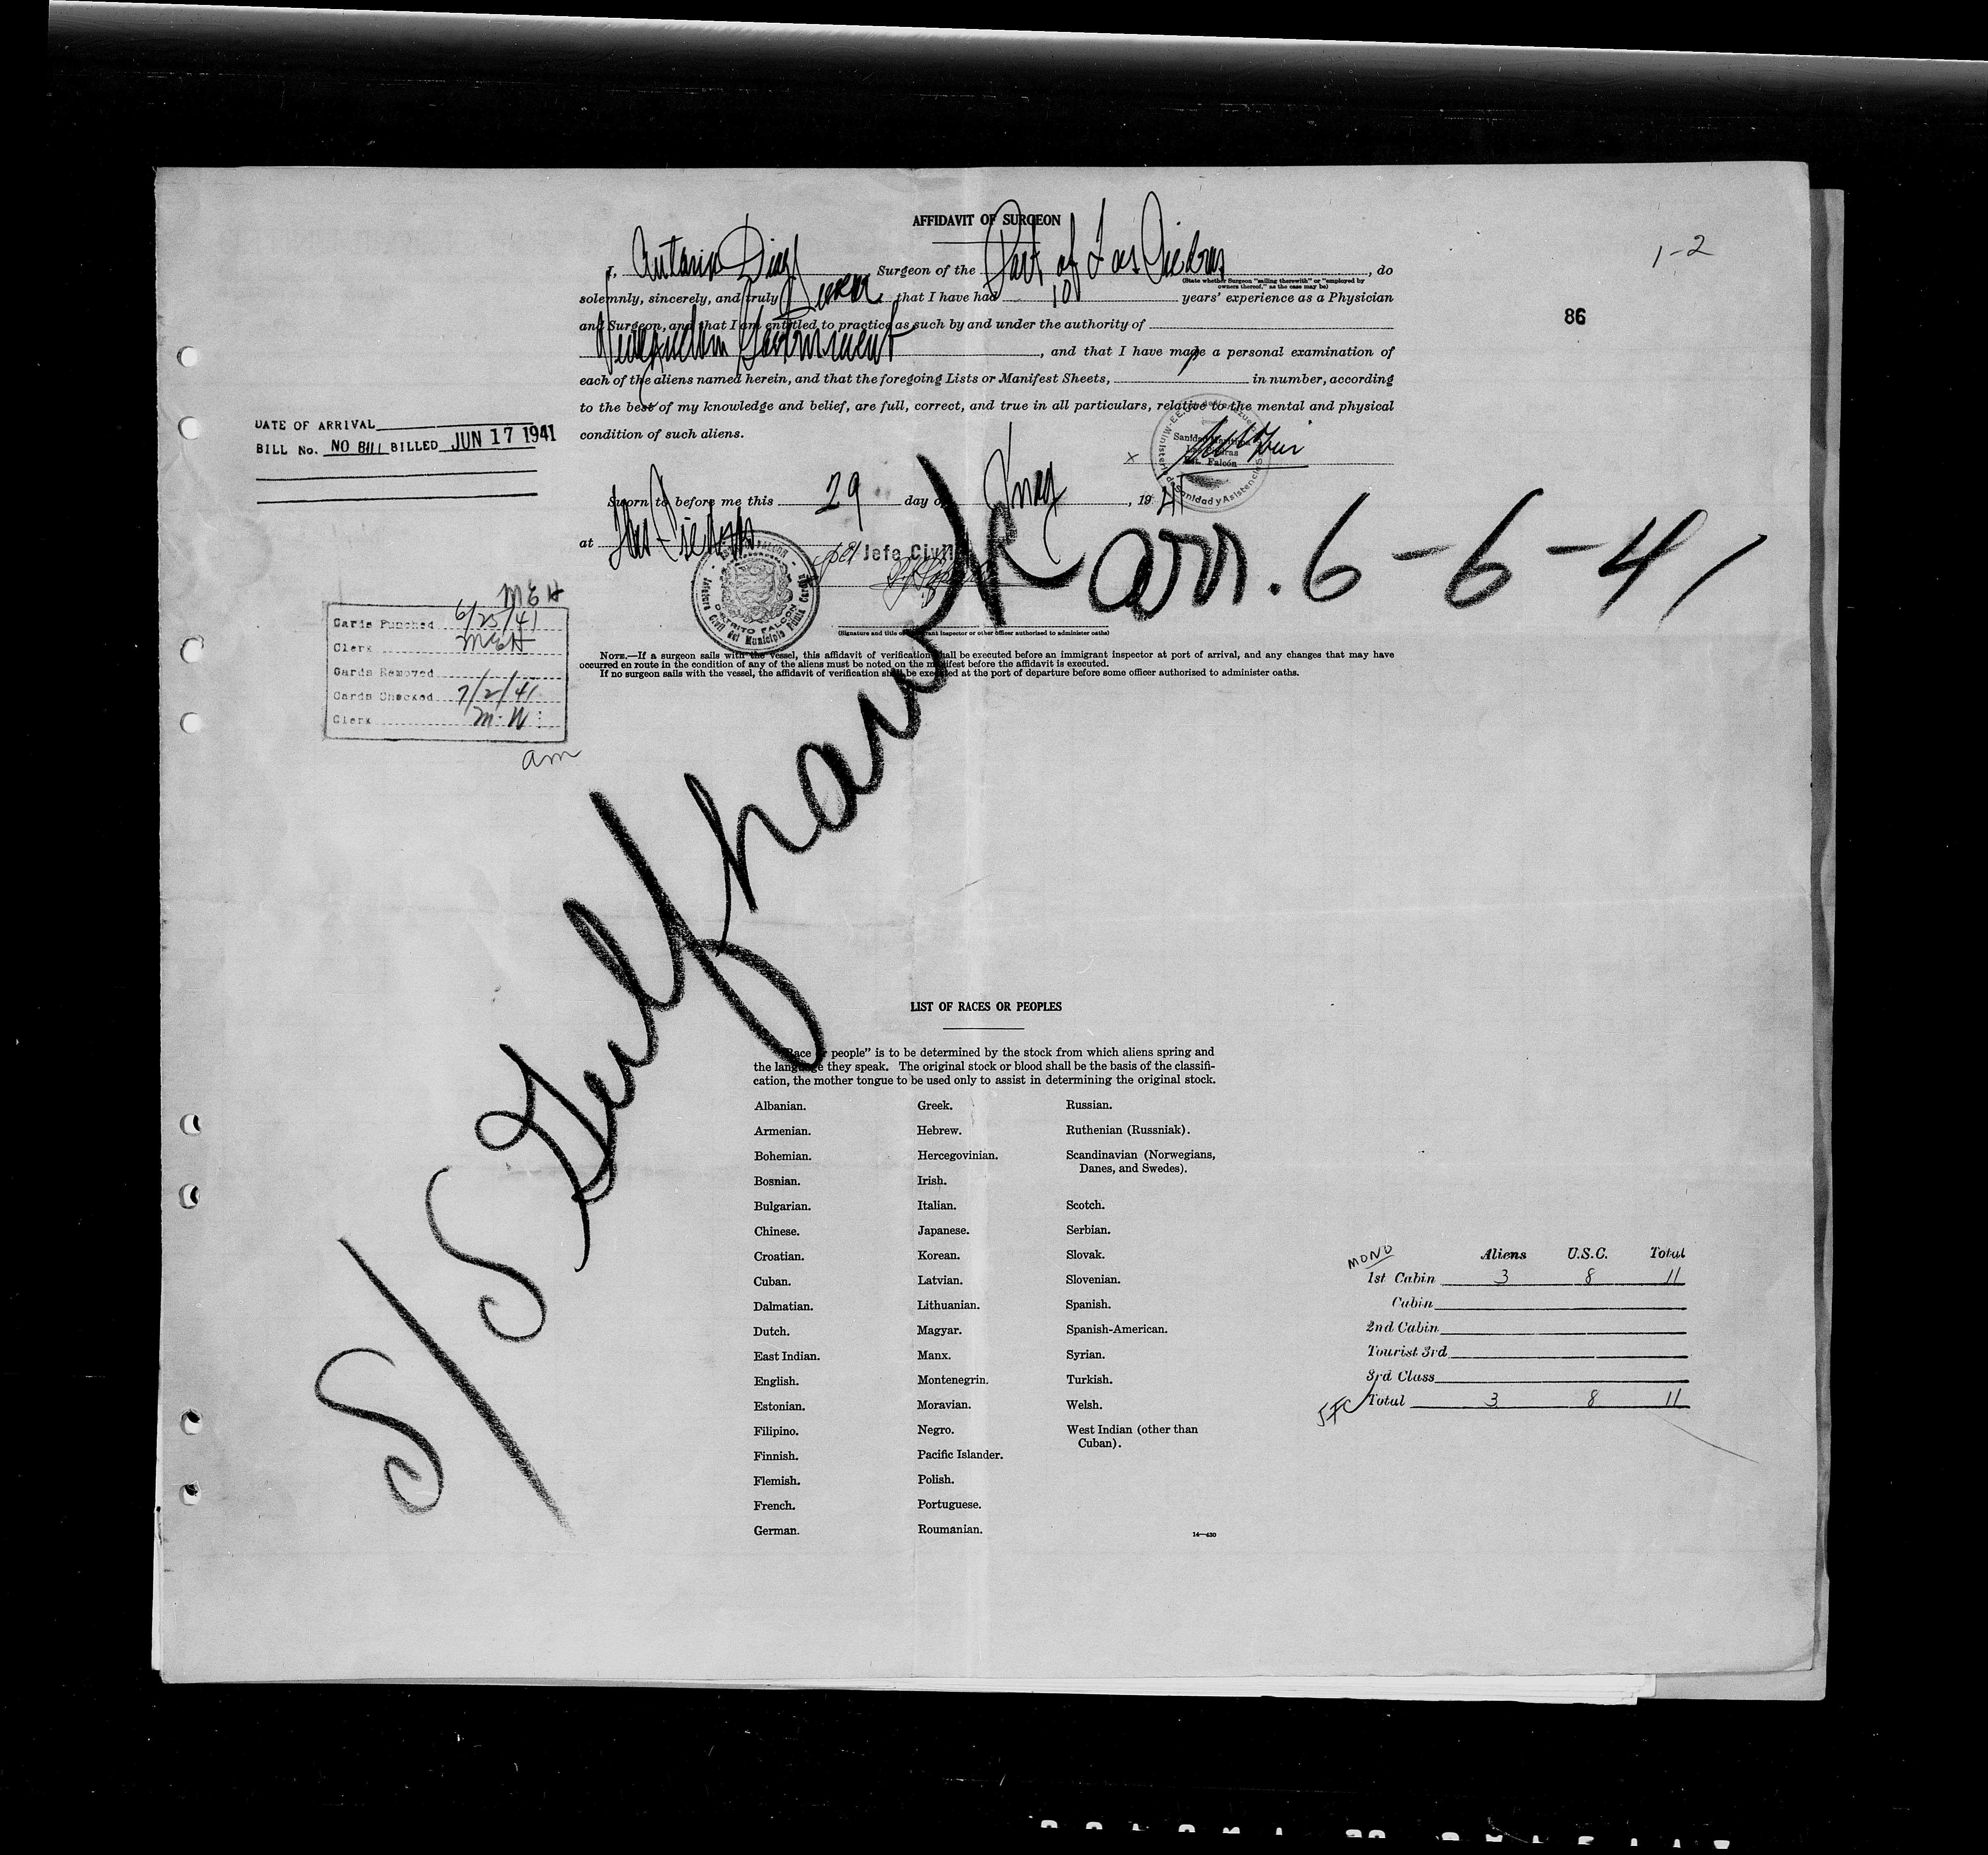 AFFIDAVIT OF SURGEON
1-2
I, Antonio Diaz Surgeon of the Port of Las Piedras, do
(State whether Surgeon "sailing therewith" or "employed by
owners thereof," as the case may be)
solemnly, sincerely, and truly Swear that I have had 10 years' experience as a Physician
86
and Surgeon, and that I am entitled to practice as such by and under the authority of
Venezuelan Government, and that I have made a personal examination of
each of the aliens named herein, and that the foregoing Lists or Manifest Sheets, in number, according
to the best of my knowledge and belief, are full, correct, and true in all particulars, relative to the mental and physical
condition of such aliens.
DATE OF ARRIVAL
BILL No. NO BILL BILLED JUN 17 1941
Sanidad Marítima
Las Piedras
Est. Falcón
Sworn to before me this 29 day of May, 1941
at Las Piedras
Jefe Civil
DISTRITO FALCON
Jefatura Civil del Municipio Punta Cardón
arr. 6-6-41
(Signature and title of immigrant inspector or other officer authorized to administer oaths)
NOTE.—If a surgeon sails with the vessel, this affidavit of verification shall be executed before an immigrant inspector at port of arrival, and any changes that may have
occurred en route in the condition of any of the aliens must be noted on the manifest before the affidavit is executed.
If no surgeon sails with the vessel, the affidavit of verification shall be executed at the port of departure before some officer authorized to administer oaths.
MEH
Cards Punched 6/25/41
Clerk MEH
Cards Removed
Cards Checked 7/2/41
Clerk M.W.
am
S/S Gulfhawk
LIST OF RACES OR PEOPLES
"Race or people" is to be determined by the stock from which aliens spring and
the language they speak. The original stock or blood shall be the basis of the classifi-
cation, the mother tongue to be used only to assist in determining the original stock.
Albanian.
Armenian.
Bohemian.
Bosnian.
Bulgarian.
Chinese.
Croatian.
Cuban.
Dalmatian.
Dutch.
East Indian.
English.
Estonian.
Filipino.
Finnish.
Flemish.
French.
German.
Greek.
Hebrew.
Hercegovinian.
Irish.
Italian.
Japanese.
Korean.
Latvian.
Lithuanian.
Magyar.
Manx.
Montenegrin.
Moravian.
Negro.
Pacific Islander.
Polish.
Portuguese.
Roumanian.
Russian.
Ruthenian (Russniak).
Scandinavian (Norwegians,
Danes, and Swedes).
Scotch.
Serbian.
Slovak.
Slovenian.
Spanish.
Spanish-American.
Syrian.
Turkish.
Welsh.
West Indian (other than
Cuban).
14—430
MONO
Aliens U.S.C. Total
1st Cabin 3 8 11
Cabin
2nd Cabin
Tourist 3rd
3rd Class
JFC Total 3 8 11